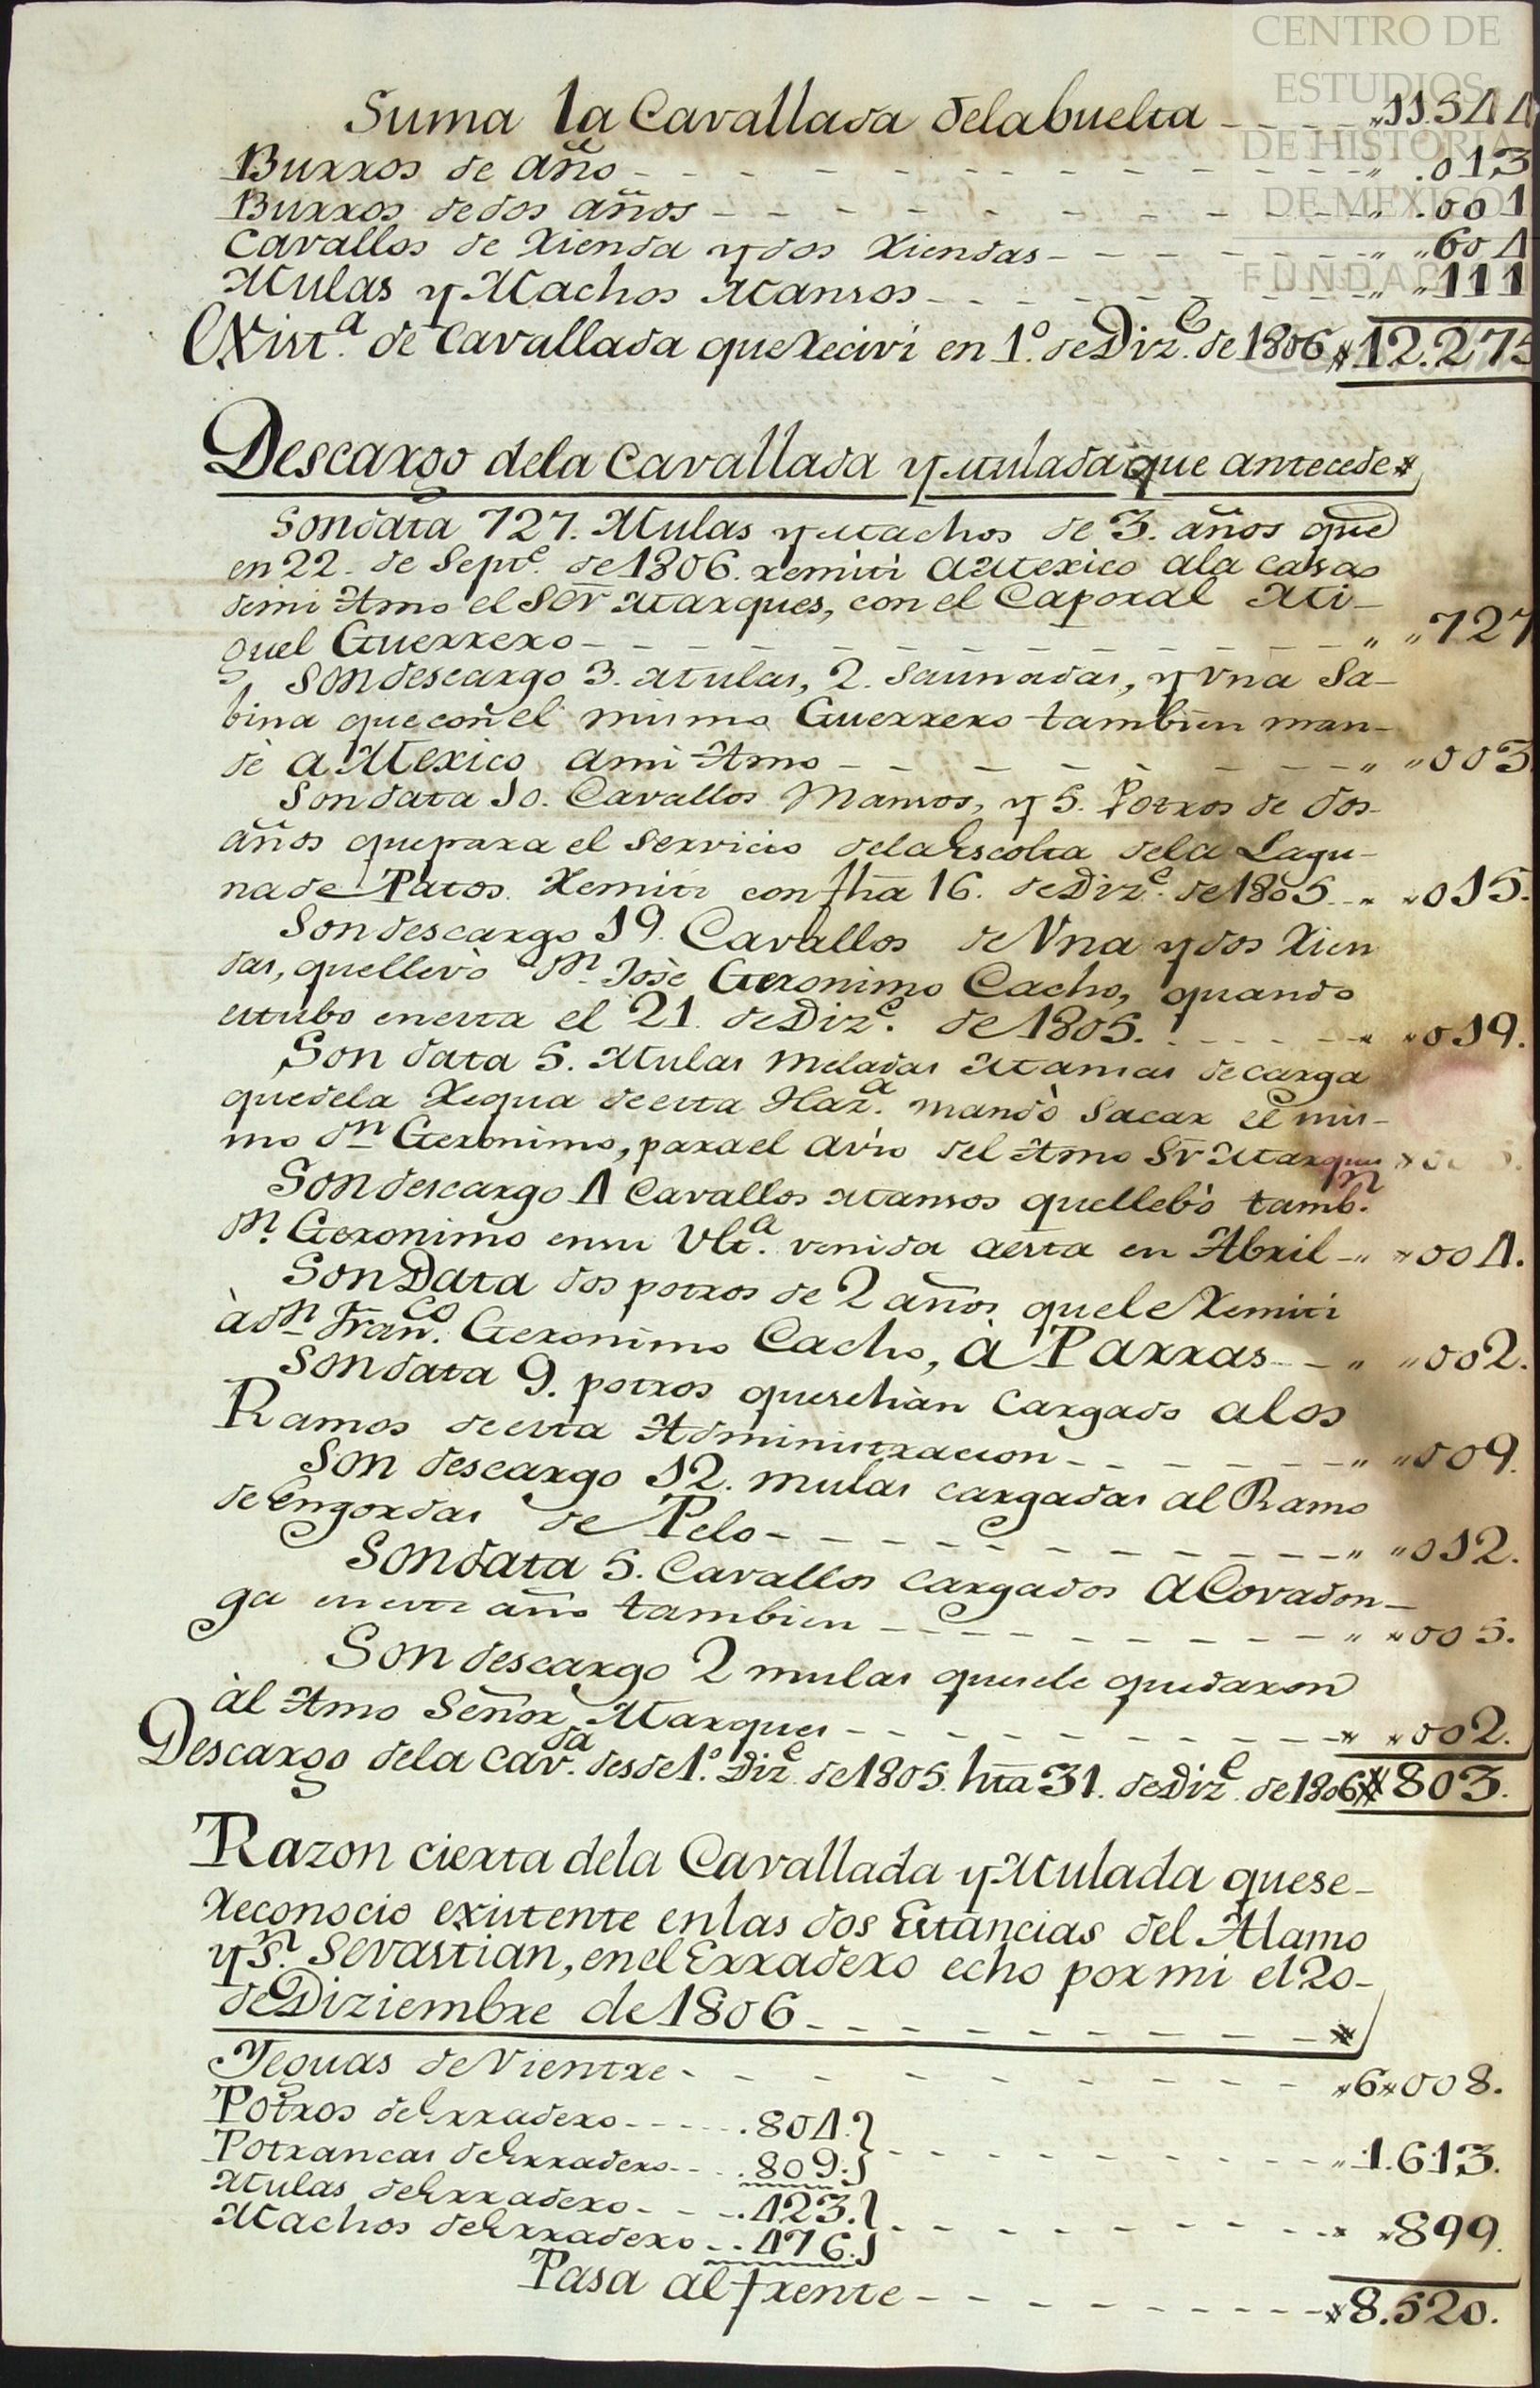 CENTRO DE
ESTUDIOS
DE HISTORIA
DE MEXICO
FUNDA
Suma la Cavallada delabuelta - - - - „11.544
Burros de año - - - - - - - - - „ .013
Burros dedos años - - - - - - - - - „ .001
Cavallos de Rienda ydos Riendas - - - - - - „ „604
Mulas y Machos Mansos - - - - - - - „ „111
Exist.ª de Cavallada queRecivi en 1.º deDiz.e de 1806 „12.273
Descargo dela Cavallada y mulada que antecede
Sondata 727. Mulas y Machos de 3. años que
en 22. de Sept.e de 1806. remiti aMexico ala casa
demi Amo el Sor Marques, con el Caporal Mi-
guel Guerrero - - - - - - - - - „ „727
Son descargo 3. Mulas, 2. Sainadas, y Vna Sa-
bina que con el mismo Guerrero tambien man-
dè a Mexico ami Amo - - - - - - - „ „003
Son data 10. Cavallos Mansos, y 5. Potros de dos
años quepara el Servicio delaEscolta dela Lagu-
nade Patos. Remiti con fha 16. deDiz.e de 1805. „ „015.
Son descargo 19. Cavallos de Vna ydos Rien
das, quellevò Dn. Josè Geronimo Cacho, quando
estubo enesta el 21. deDiz.e de 1805. - - - - „ „019.
Son data 5. Mulas Meladas Mansas decarga
quedela Requa deesta Haz.ª mandò Sacar el mis-
mo Dn Geronimo, parael avio del Amo Sr Marques
Son descargo 4 Cavallos Mansos quellebò tamb.n
Dn. Geronimo ensu Vlt.ª venida aesta en Abril - „ „004.
Son Data dos potros de 2 años quele Remiti
à dn Fran.co Geronimo Cacho, à Parras - - „ „002.
Son data 9. potros quesehàn Cargado alos
Ramos deesta Administracion - - - - - - „ „009.
Son descargo 12. mulas cargadas al Ramo
deEngordas de Pelo - - - - - - - - - „ „012.
Son data 5. Cavallos cargados aCovadon-
ga eneste año tambien - - - - - - - - „ „005.
Son descargo 2 mulas quesele quedaron
àl Amo Señor Marques - - - - - - - - „ „002.
Descargo dela Cav.da desde1.º Diz.e de1805. hta 31. deDiz.e de 1806 „803.
Razon cierta dela Cavallada y Mulada quese-
Reconocio existente enlas dos Estancias del Alamo
y Sn. Sevastian, enel Erradero echo por mi el 20-
deDiziembre de 1806 - - - - - - - - -
Yeguas deVientre - - - - - - - - - „6„008.
Potros deErradero - - - - .804.}
Potrancas deErradero - - .809.} - - - - - - „1.613.
Mulas deErradero - - - .423.}
Machos deErradero - - .476.} - - - - - - „ „899.
Pasa al frente - - - - - - - - „8.520.